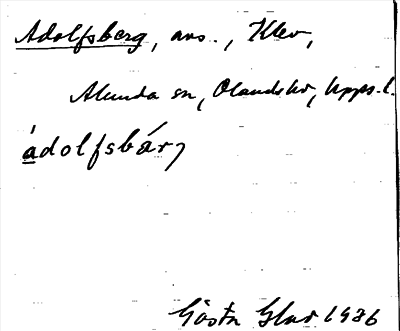 Adolfsberg, avs., Klev,
Alunda sn, Olandshd, Upps. l.
ádolfsbárj
Gösta 1936